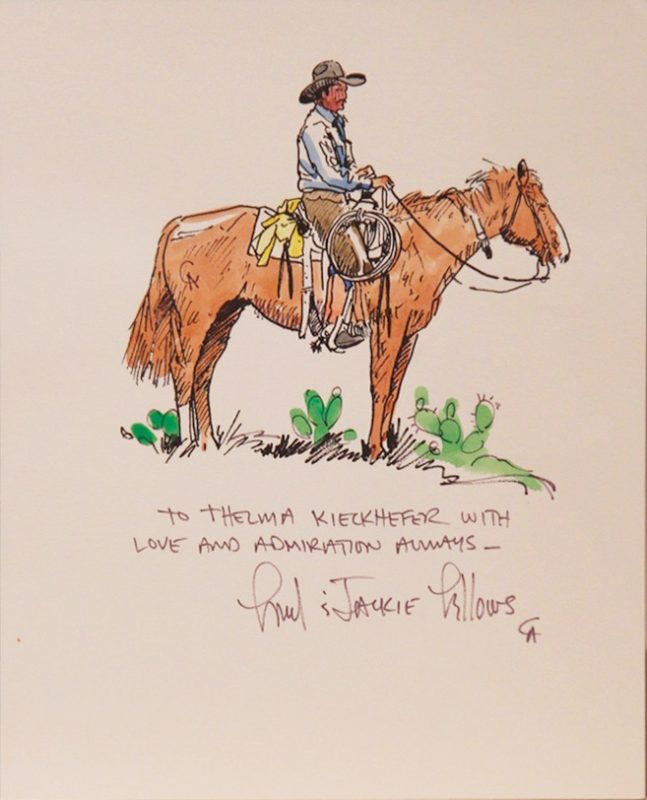 TO THELMA KIECKHEFER WITH
LOVE AND ADMIRATION ALWAYS –
Fred & JACKIE Fellows
CA